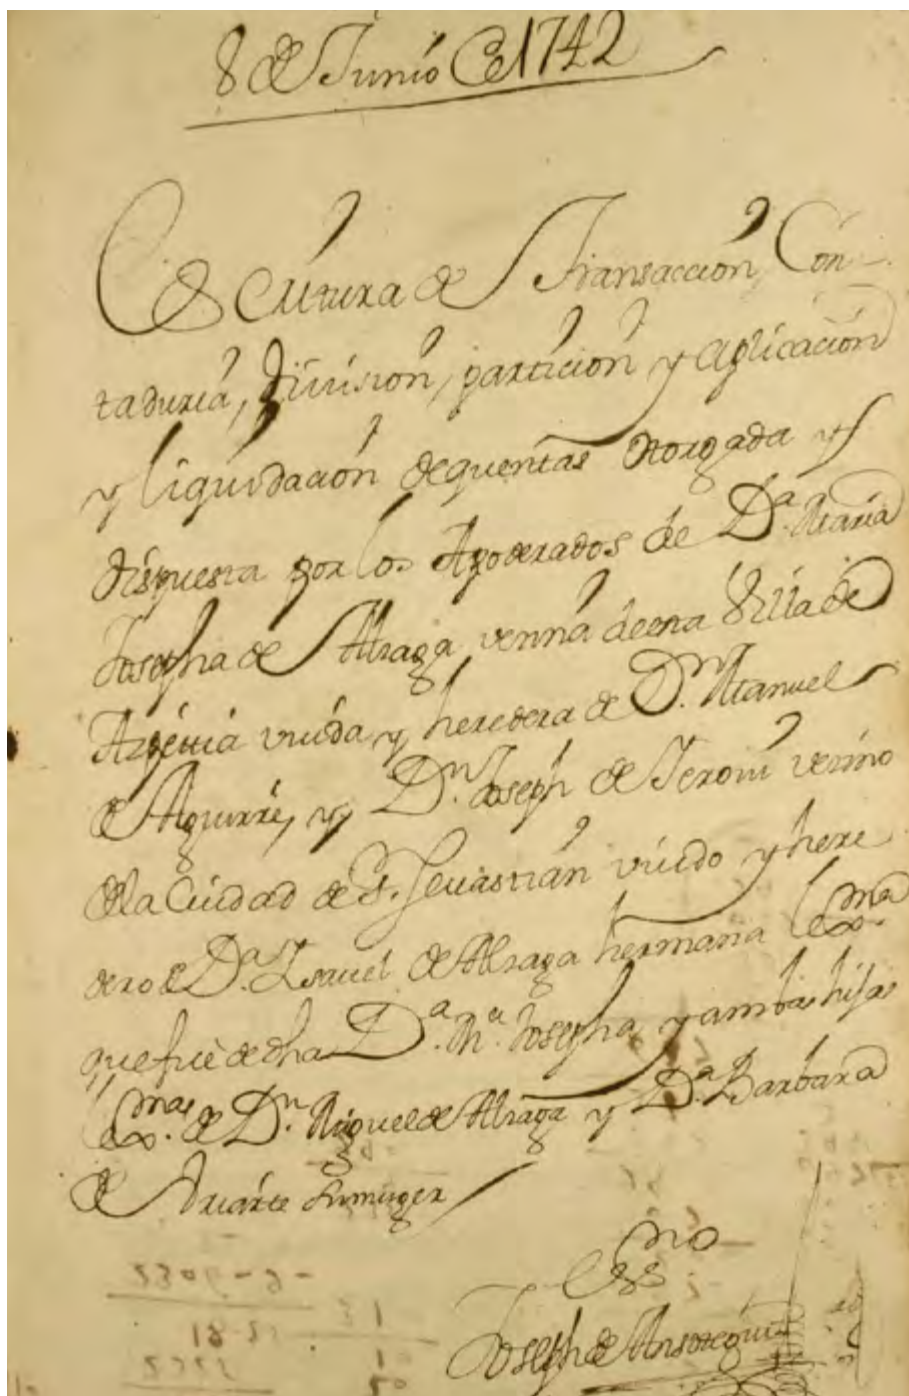 8 de Junio de 1742
Escritura de Transacción, Con-
taduria, Division, particion y aplicación
y liquidación de quentas otorgada y
dispuesta por los Apoderados de D.ª Maria
Josepha de Alzaga vecina de esta Villa de
viuda y heredera de D.n Manuel
de Aguirre, y D.n Joseph de Jeroni vecino
de la Ciudad de S. Sevastián viudo y here
dero de D.ª Isavel de Alzaga hermana lexma.
que fue de dha D.ª M.ª Josepha y ambas hijas
lexmas. de D.n Miguel de Alzaga y D.ª Barbara
de Vriarte su muger
Essno
Joseph de Ansoregui